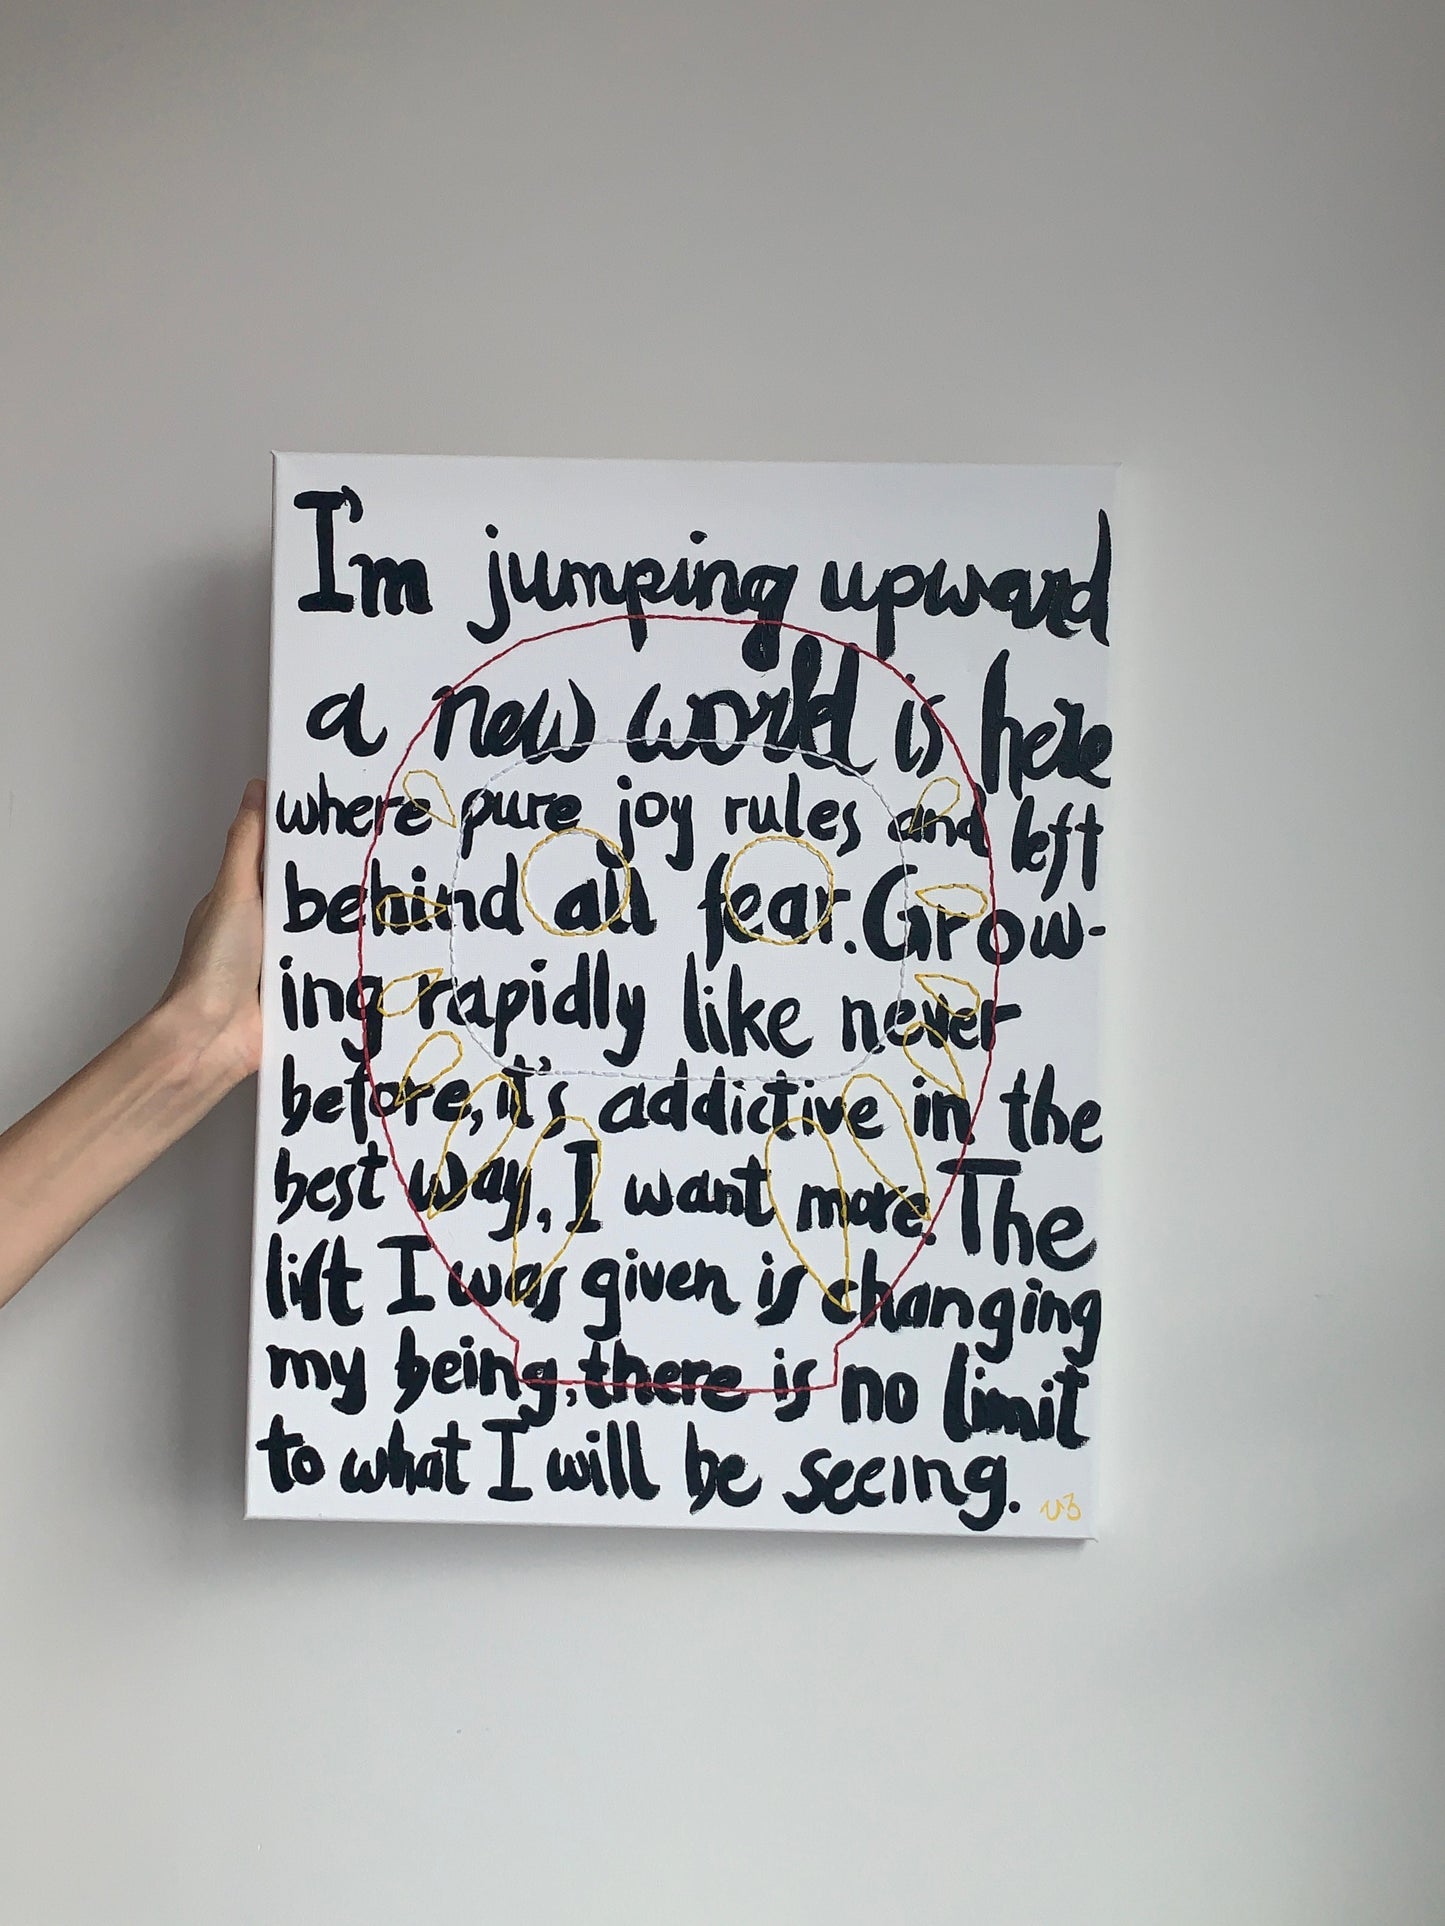 I'm jumping upward
a new world is here
where pure joy rules and left
behind all fear. Grow-
ing rapidly like never
before, it's addictive in the
best way, I want more. The
lift I was given is changing
my being, there is no limit
to what I will be seeing.